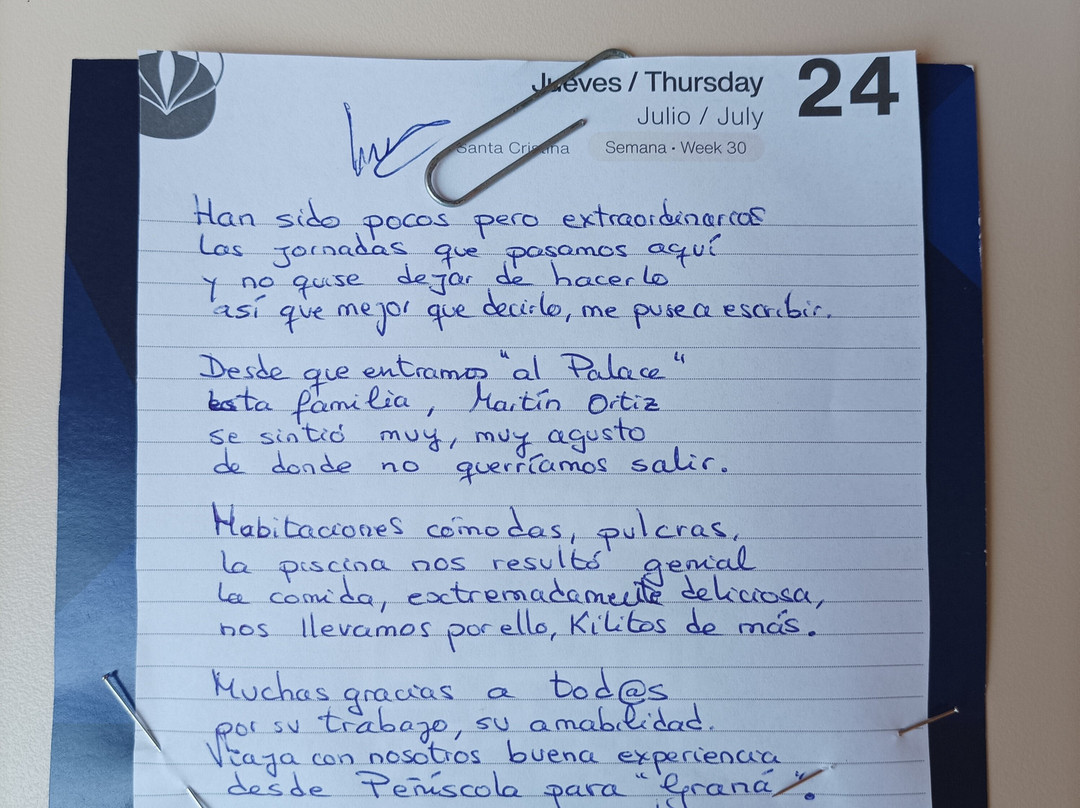 Jueves / Thursday 24
Julio / July
Santa Cristina Semana • Week 30
Han sido pocos pero extraordinarios
Las jornadas que pasamos aquí
y no quise dejar de hacerlo
así que mejor que decirlo, me puse a escribir.
Desde que entramos "al Palace"
Esta familia, Martín Ortiz
se sintió muy, muy agusto
de donde no querríamos salir.
Habitaciones cómodas, pulcras,
la piscina nos resultó genial
La comida, extremadamente deliciosa,
nos llevamos por ello, Kilitos de más.
Muchas gracias a tod@s
por su trabajo, su amabilidad.
Viaja con nosotros buena experiencia
desde Peñíscola para "Graná".